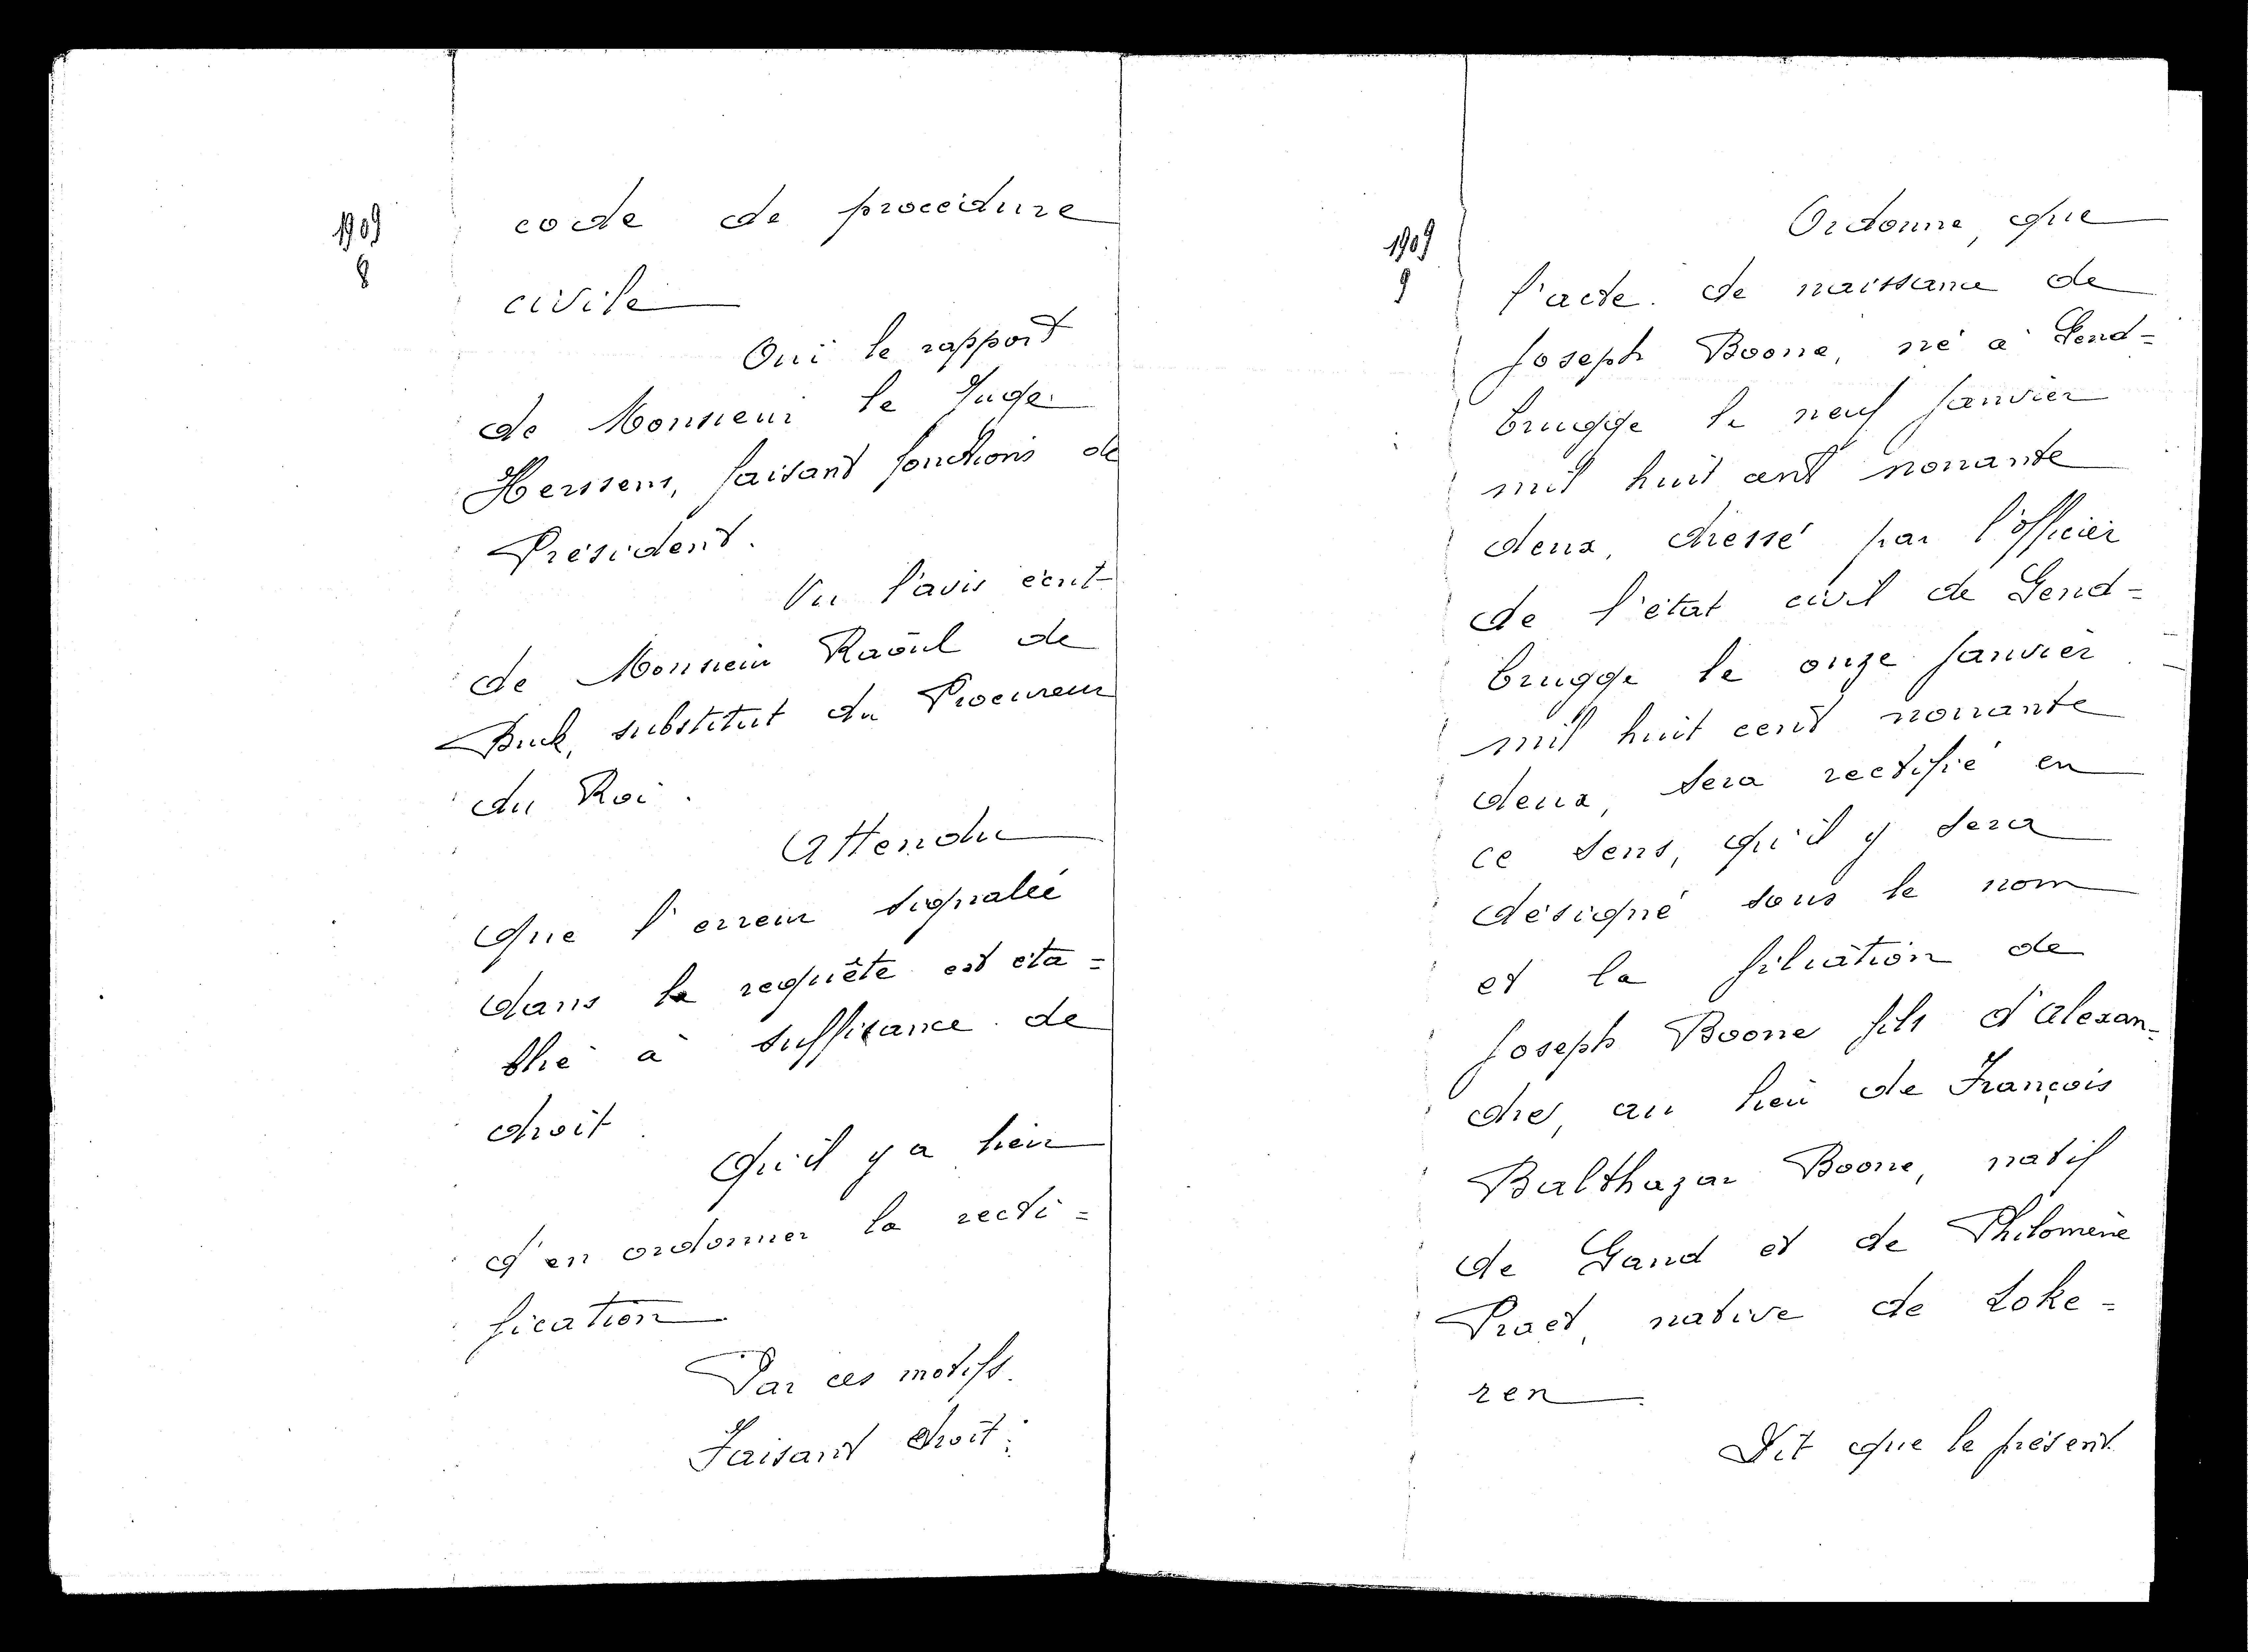 1909
8
code de procédure
civile
Ouï le rapport
de Monsieur le Juge
Herssens, faisant fonctions de
Président.
Vu l'avis écrit
de Monsieur Raoul de
Buck, substitut du Procureur
du Roi.
Attendu
que l'erreur signalée
dans la requête est éta=
blie à suffisance de
droit.
Qu'il y a lieu
d'en ordonner la recti=
fication
Par ces motifs.
Faisant droit:
1909
9
Ordonne, que
l'acte de naissance de
Joseph Boone, né à Gend=
brugge le neuf Janvier
mil huit cent nonante
deux, dressé par l'officier
de l'état civil de Gend=
brugge le onze Janvier
mil huit cent nonante
deux, sera rectifié en
ce sens, qu'il y sera
désigné sous le nom
et la filiation de
Joseph Boone fils d'Alexan=
dre, au lieu de François
Balthazar Boone, natif
de Gand et de Philomène
Praet, native de Loke=
ren
Dit que le présent